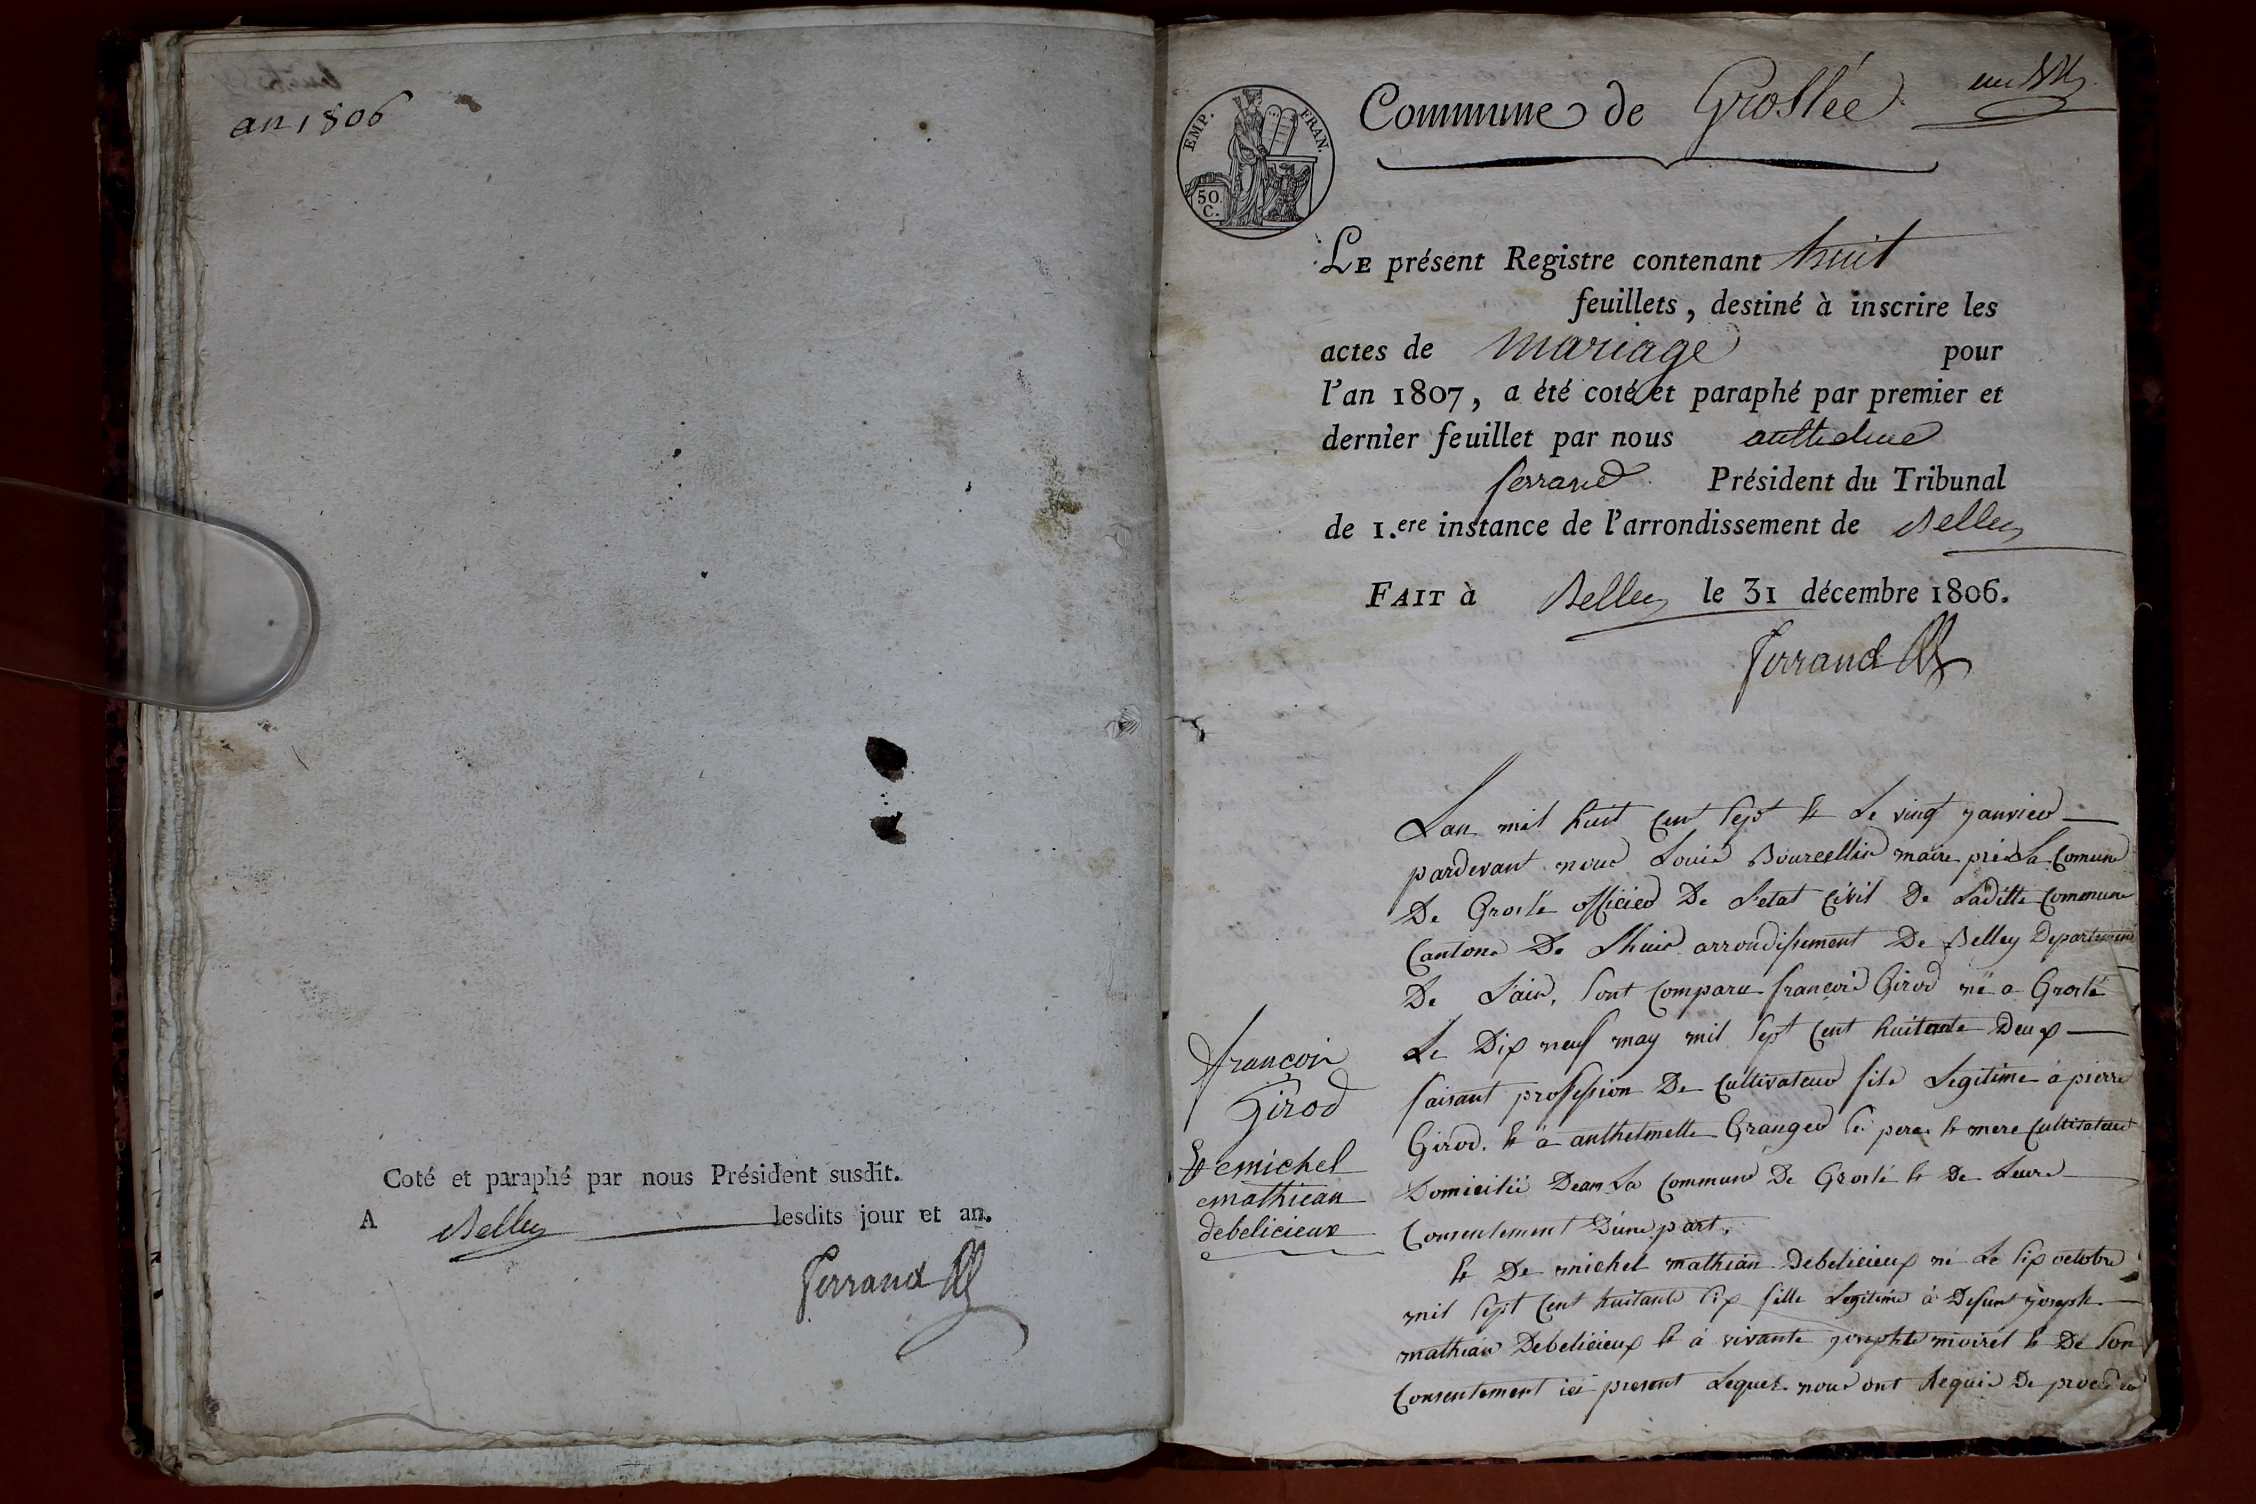 an 1806
Coté et paraphé par nous Président susdit.
A Belley lesdits jour et an.
Ferrand
Commune de Groslée
EMP. FRAN.
50 C.
LE présent Registre contenant huit
feuillets, destiné à inscrire les
actes de mariage pour
l'an 1807, a été coté et paraphé par premier et
dernier feuillet par nous anthelme
ferrand Président du Tribunal
de 1.ere instance de l'arrondissement de Belley
FAIT à Belley le 31 décembre 1806.
Ferrand
Lan mil huit cent sept & Le vingt janvier
pardevant nous Louis Bourcellin maire de La Comune
De Groslé officier De L'etat Civil De Laditte Commune
Cantone De Lhuis arrondissement De Belley Departement
De L'ain, sont comparu françois Girod né a Groslé
Le Dix neuf may mil sept Cent huitante Deux
faisant profession De Cultivateur fils Legitime à pierre
Girod & à anthelmette Granger ses pere & mere Cultivateur
Domicilié Dean La Commune De Groslé & De Leurs
Consentement D'une part,
& De michel mathian Debelicieux né Le six octobre
mil sept Cent huitante six fille Legitime à Defunt joseph
mathian Debelicieux & à vivante josephte moiret & De son
Consentement ici present Lequel nous ont Requis De proceder
françois
Girod
& michel
mathian
debelicieux